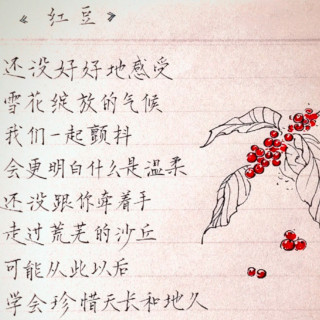 《红豆》
还没好好地感受
雪花绽放的气候
我们一起颤抖
会更明白什么是温柔
还没跟你牵着手
走过荒芜的沙丘
可能从此以后
学会珍惜天长和地久